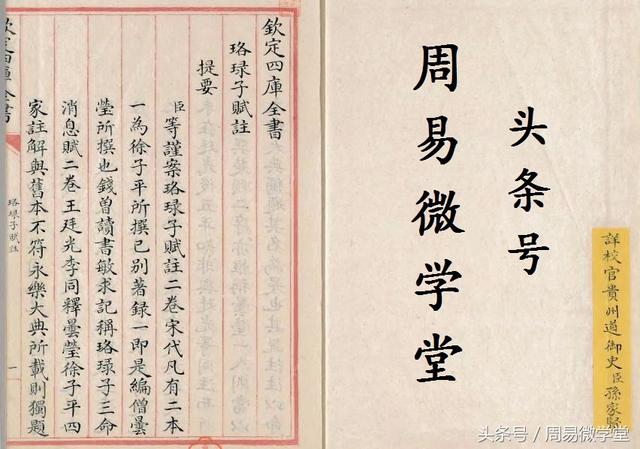 欽定四庫全書
珞琭子賦註
提要
臣等謹案珞琭子賦註二卷宋代凡有二本
一為徐子平所撰已别著録一即是編僧曇
瑩所撰也錢曾讀書敏求記稱珞琭子三命
消息賦二卷王廷光李同釋曇瑩徐子平四
家註解與舊本不符永樂大典所載則獨題
欽定四庫全書
珞琭子賦註
一
头条号
周易微学堂
詳校官貴州道御史臣孫家賢
头条号 / 周易微学堂